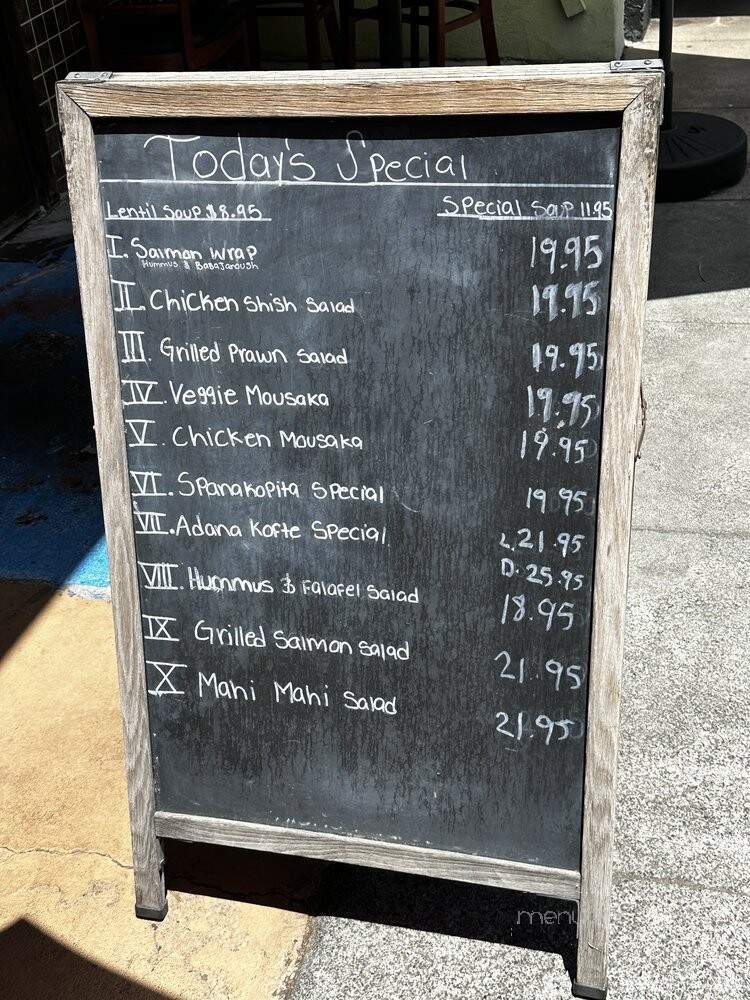 Today's Special
Lentil Soup $8.95 Special Soup 11.95
I. Salmon Wrap 19.95
Hummus & Babaganoush
II. Chicken Shish Salad 19.95
III. Grilled Prawn Salad 19.95
IV. Veggie Mousaka 19.95
V. Chicken Mousaka 19.95
VI. Spanakopita Special 19.95
VII. Adana Kofte Special L. 21.95
D. 25.95
VIII. Hummus & Falafel Salad 18.95
IX Grilled Salmon Salad 21.95
X Mahi Mahi Salad 21.95
menu